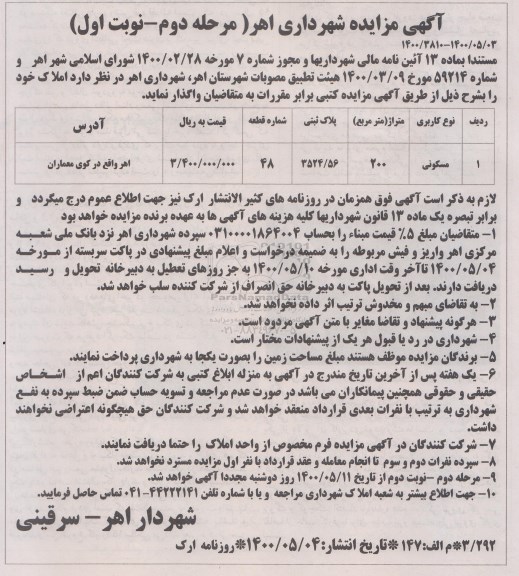 آگهی مزایده شهرداری اهر( مرحله دوم-نوبت اول)
۱۴۰۰/۳۸۱۰-۱۴۰۰/۰۵/۰۳
مستندا بماده ۱۳ آئین نامه مالی شهرداریها و مجوز شماره ۷ مورخه ۱۴۰۰/۰۲/۲۸ شورای اسلامی شهر اهر و
شماره ۵۹۲۱۴ مورخ ۱۴۰۰/۰۳/۰۹ هیئت تطبیق مصوبات شهرستان اهر، شهرداری اهر در نظر دارد املاک خود
را بشرح ذیل از طریق آگهی مزایده کتبی برابر مقررات به متقاضیان واگذار نماید.
ردیف نوع کاربری متراژ(متر مربع) پلاک ثبتی شماره قطعه قیمت به ریال آدرس
۱ مسکونی ۲۰۰ ۳۵۲۴/۵۶ ۴۸ ۳/۴۰۰/۰۰۰/۰۰۰ اهر واقع در کوی معماران
لازم به ذکر است آگهی فوق همزمان در روزنامه های کثیر الانتشار ارک نیز جهت اطلاع عموم درج میگردد و
برابر تبصره یک ماده ۱۳ قانون شهرداریها کلیه هزینه های آگهی ها به عهده برنده مزایده خواهد بود
۱- متقاضیان مبلغ ۵٪ قیمت مبناء را بحساب ۰۳۱۰۰۰۰۱۸۶۴۰۰۴ سپرده شهرداری اهر نزد بانک ملی شعبه
مرکزی اهر واریز و فیش مربوطه را به ضمیمه درخواست و اعلام مبلغ پیشنهادی در پاکت سربسته از مورخه
۱۴۰۰/۰۵/۰۴ تا آخر وقت اداری مورخه ۱۴۰۰/۰۵/۱۰ به جز روزهای تعطیل به دبیرخانه تحویل و رسید
دریافت دارند. بعد از تحویل پاکت به دبیرخانه حق انصراف از شرکت کننده سلب خواهد شد.
۲- به تقاضای مبهم و مخدوش ترتیب اثر داده نخواهد شد.
۳- هرگونه پیشنهاد و تقاضا مغایر با متن آگهی مردود است.
۴- شهرداری در رد یا قبول هر یک از پیشنهادات مختار است.
۵- برندگان مزایده موظف هستند مبلغ مساحت زمین را بصورت یکجا به شهرداری پرداخت نمایند.
۶- یک هفته پس از آخرین تاریخ مندرج در آگهی به منزله ابلاغ کتبی به شرکت کنندگان اعم از اشخاص
حقیقی و حقوقی همچنین پیمانکاران می باشد در صورت عدم مراجعه و تسویه حساب ضمن ضبط سپرده به نفع
شهرداری به ترتیب با نفرات بعدی قرارداد منعقد خواهد شد و شرکت کنندگان حق هیچگونه اعتراضی نخواهند
داشت.
۷- شرکت کنندگان در آگهی مزایده فرم مخصوص از واحد املاک را حتما دریافت نمایند.
۸- سپرده نفرات دوم و سوم تا انجام معامله و عقد قرارداد با نفر اول مزایده مسترد نخواهد شد.
۹- مرحله دوم -نوبت دوم از تاریخ ۱۴۰۰/۰۵/۱۱ روز دوشنبه مجددا آگهی خواهد شد.
۱۰- جهت اطلاع بیشتر به شعبه املاک شهرداری مراجعه و یا با شماره تلفن ۴۴۲۲۲۱۴۱-۰۴۱ تماس حاصل فرمایید.
شهردار اهر- سرقینی
۳/۲۹۲*م الف:۱۴۷ *تاریخ انتشار:۱۴۰۰/۰۵/۰۴*روزنامه ارک